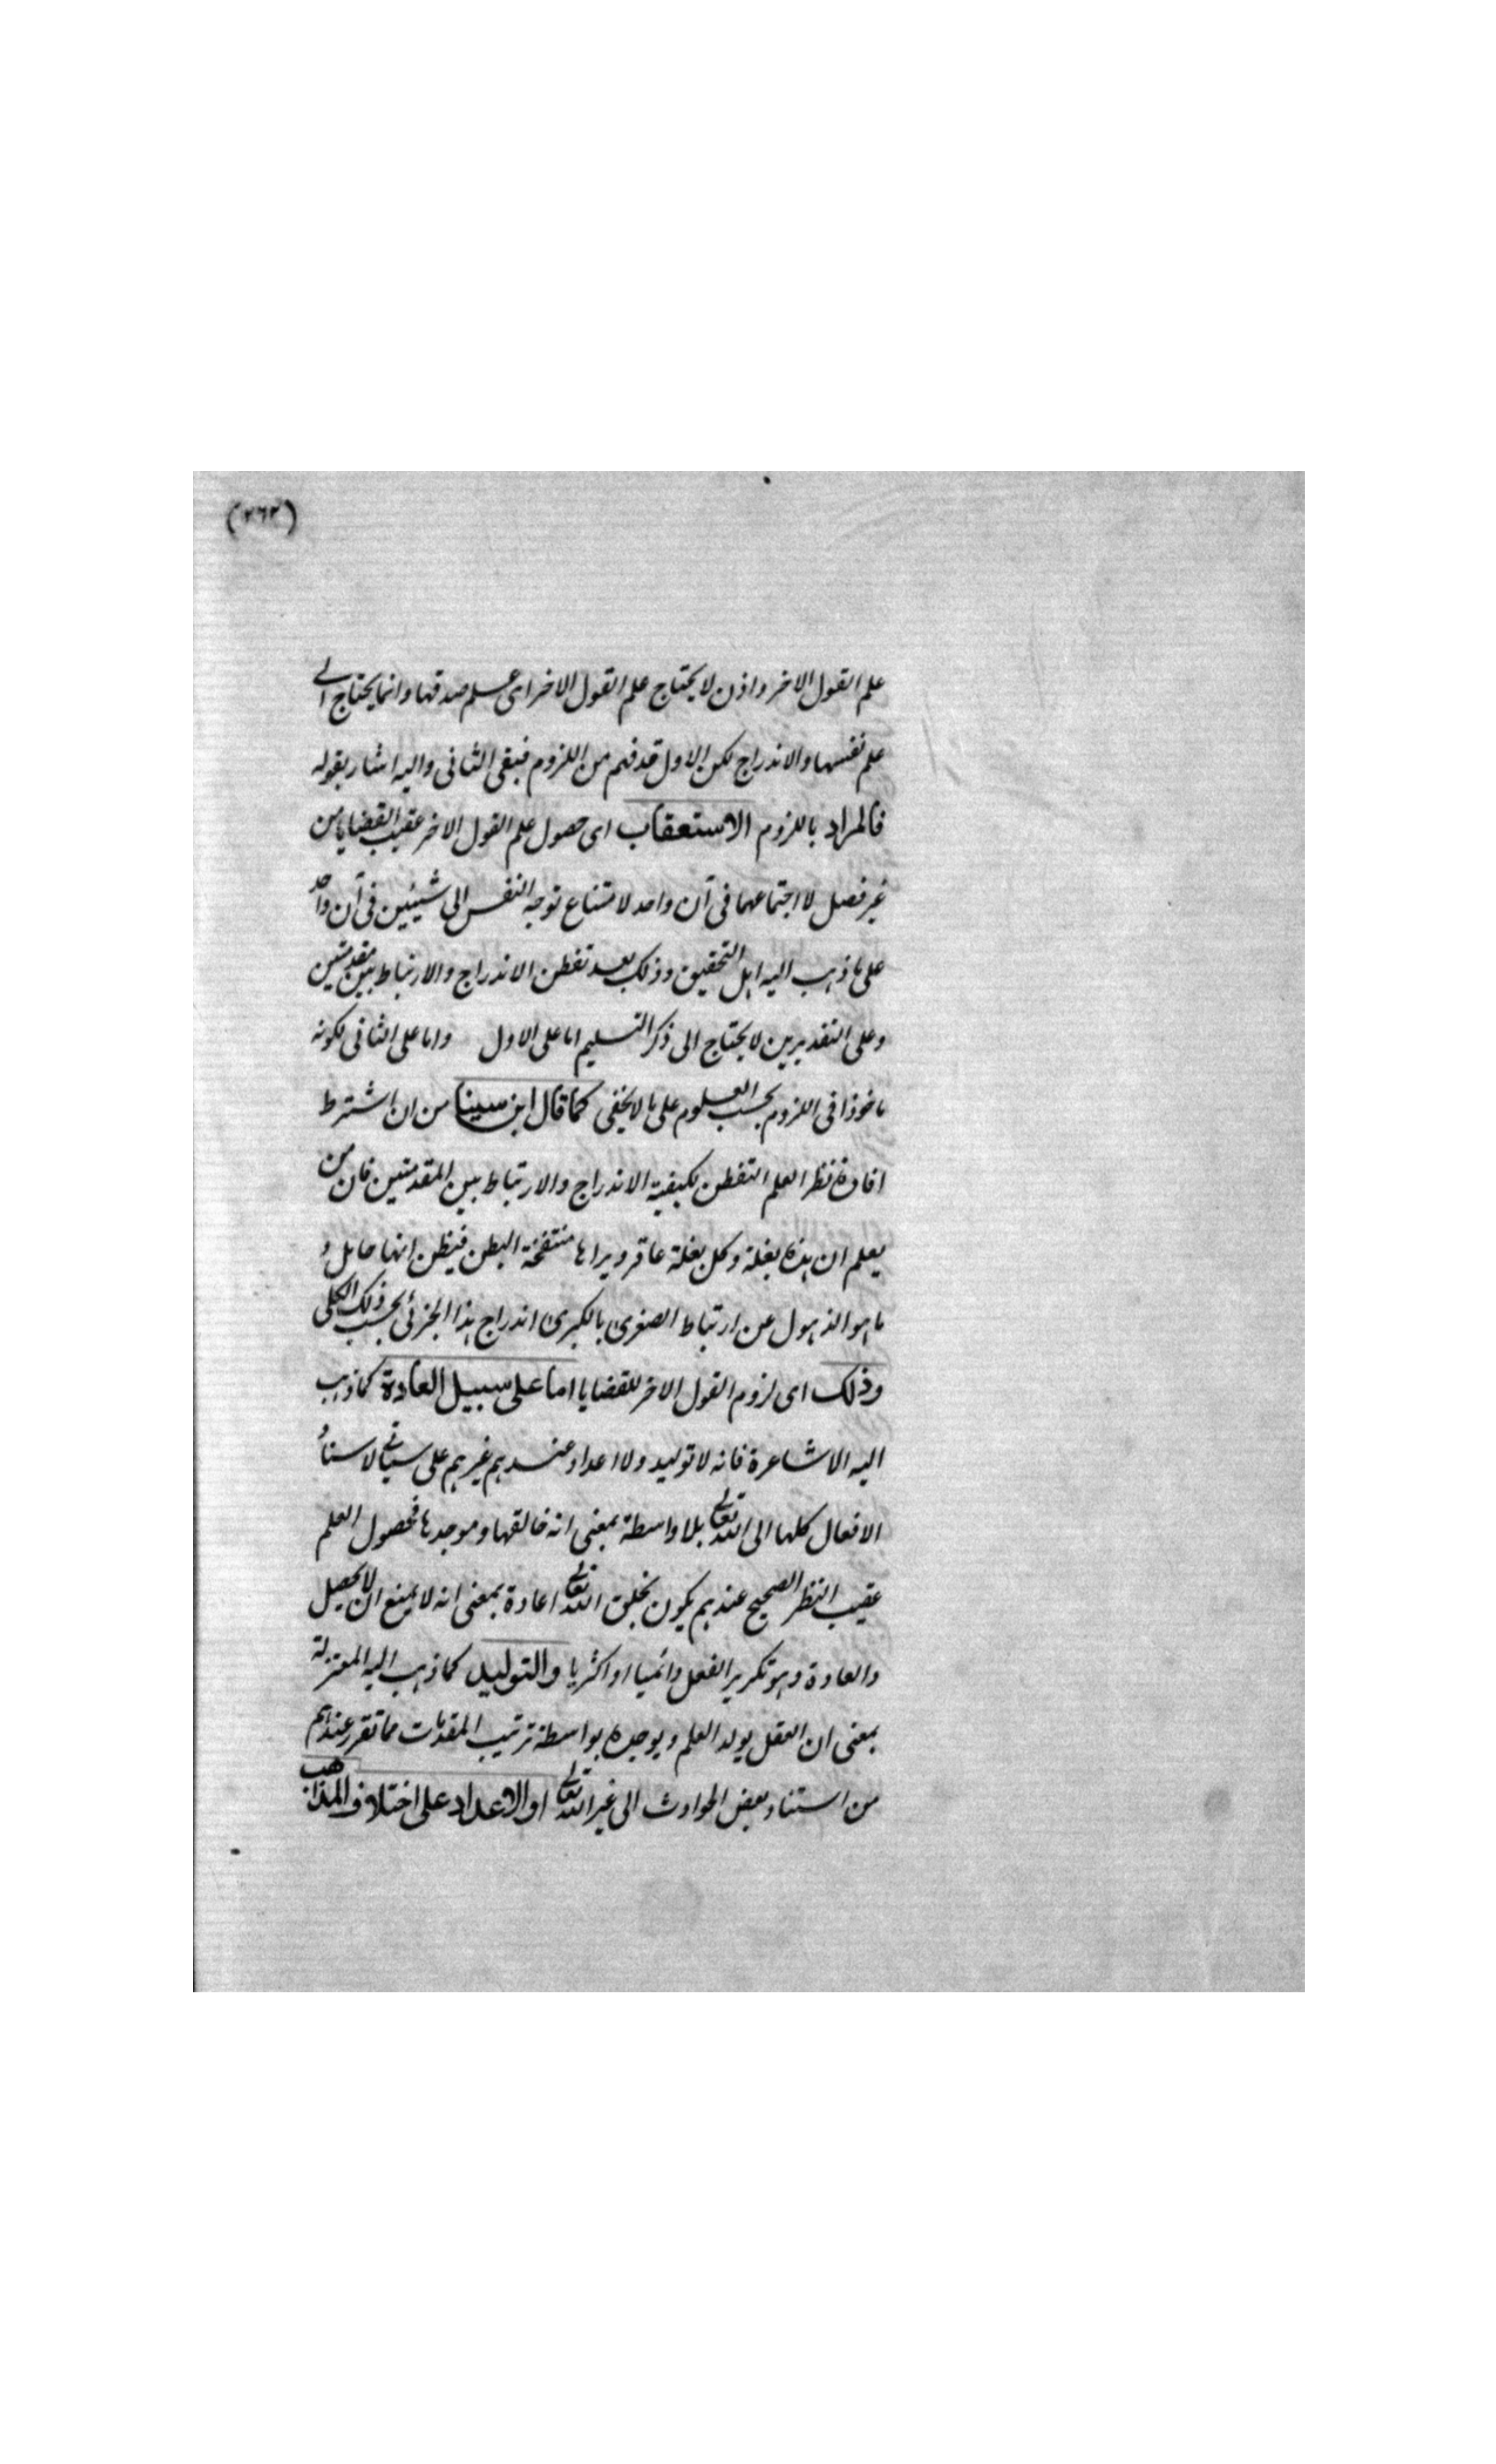 (٢٦٢)
علم القول الاخر واذن لا يحتاج علم القول الاخر اى علم صدقها وانما يحتاج الى
علم نفسها والاندراج لكن الاول قد فهم من اللزوم فبقى الثانى واليه اشار بقوله
فالمراد باللزوم الاستعقاب اى حصول علم القول الاخر عقيب القضايا من
غير فصل لا اجتماعهما فى آن واحد لامتناع توجه النفس الى شيئين فى آن واحد
على ما ذهب اليه اهل التحقيق وذلك بعد تفطن الاندراج والارتباط بين مقدمتين
وعلى التقديرين لا يحتاج الى ذكر التسليم اما على الاول واما على الثانى لكونه
ماخوذا فى اللزوم بحسب العلوم على ما لا يخفى كما قال ابن سينا من ان اشترط
افادة نظر العلم التفطن بكيفية الاندراج والارتباط بين المقدمتين فان من
يعلم ان هذه بغلة وكل بغلة عاقر ويراها منتفخة البطن فيظن انها حامل و
ما هو الا ذهول عن ارتباط الصغرى بالكبرى اندراج هذا الجزئى بحسب ذلك الكلى
وذلك اى لزوم القول الاخر للقضايا اما على سبيل العادة كما ذهب
اليه الاشاعرة فانه لا توليد ولا اعداد عندهم غيرهم على سياتى لاستناد
الافعال كلها الى الله تعالى بلا واسطة بمعنى انه خالقها وموجدها فحصول العلم
عقيب النظر الصحيح عندهم يكون بخلق الله تعالى اعادة بمعنى انه لا يمنع ان لا يحصل
والعادة وهو تكرير الفعل دائميا او اكثريا والتوليد كما ذهب اليه المعتزلة
بمعنى ان العقل يولد العلم ويوجده بواسطة ترتيب المقدمات مما تقرر عندهم
من استناد بعض الحوادث الى غير الله تعالى او الاعداد على اختلاف المذاهب